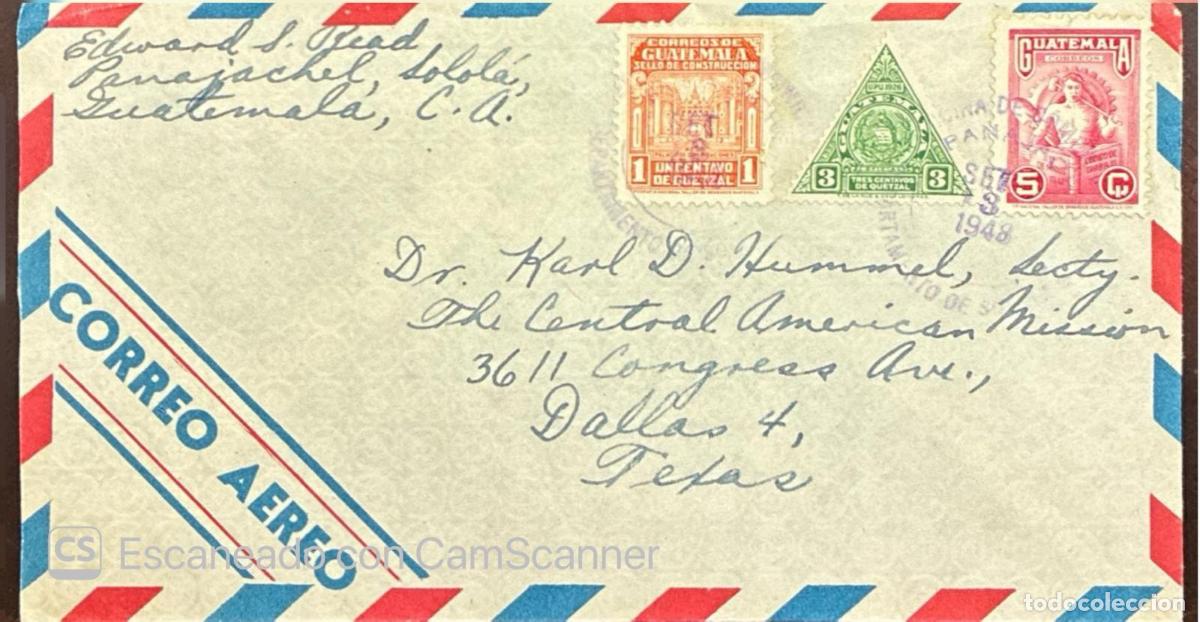 Edward S. Read
Panajachel, Sololá,
Guatemala, C. A.
CORREOS DE
GUATEMALA
SELLO DE CONSTRUCCION
1 UN CENTAVO DE QUETZAL 1
UPU 1926
GUATEMALA
3 TRES CENTAVOS DE QUETZAL 3
GUATEMALA
CORREOS
5 C
PANAJ
SET
3
1948
Dr. Karl D. Hummel, Secty.
The Central American Mission
3611 Congress Ave.,
Dallas 4,
Texas
CORREO AEREO
CS Escaneado con CamScanner
todocoleccion